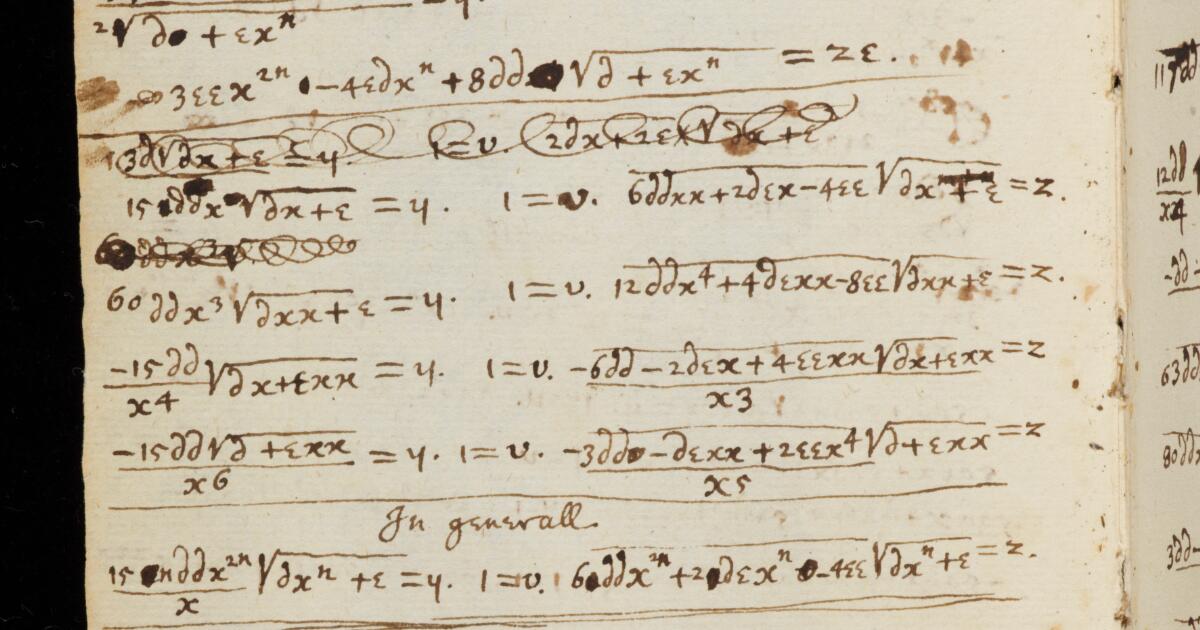 2√∂ + εxⁿ
3εεx²ⁿ −4ε∂xⁿ + 8∂∂ √∂ + εxⁿ = zε.
3∂√∂x + ε = y 1 = v. 2∂x + 2ε √∂x + ε
15∂∂x√∂x + ε = y. 1 = v. 6∂∂xx + 2∂εx − 4εε √∂x + ε = z.
60∂∂x³√∂xx + ε = y. 1 = v. 12∂∂x⁴ + 4∂εxx − 8εε√∂xx + ε = z.
−15∂∂√∂x + εxx = y. 1 = v. −6∂∂ − 2∂εx + 4εεxx√∂x + εxx = z
x4 x3
−15∂∂√∂ + εxx = y. 1 = v. −3∂∂ − ∂εxx + 2εεx⁴√∂ + εxx = z
x6 x5
In generall.
15n∂∂x²ⁿ√∂xⁿ + ε = y. 1 = v. 6∂∂x²ⁿ + 2∂εxⁿ − 4εε√∂xⁿ + ε = z.
x
117∂∂
12∂∂
x4
-∂∂
63∂∂
80∂∂x
3∂∂−